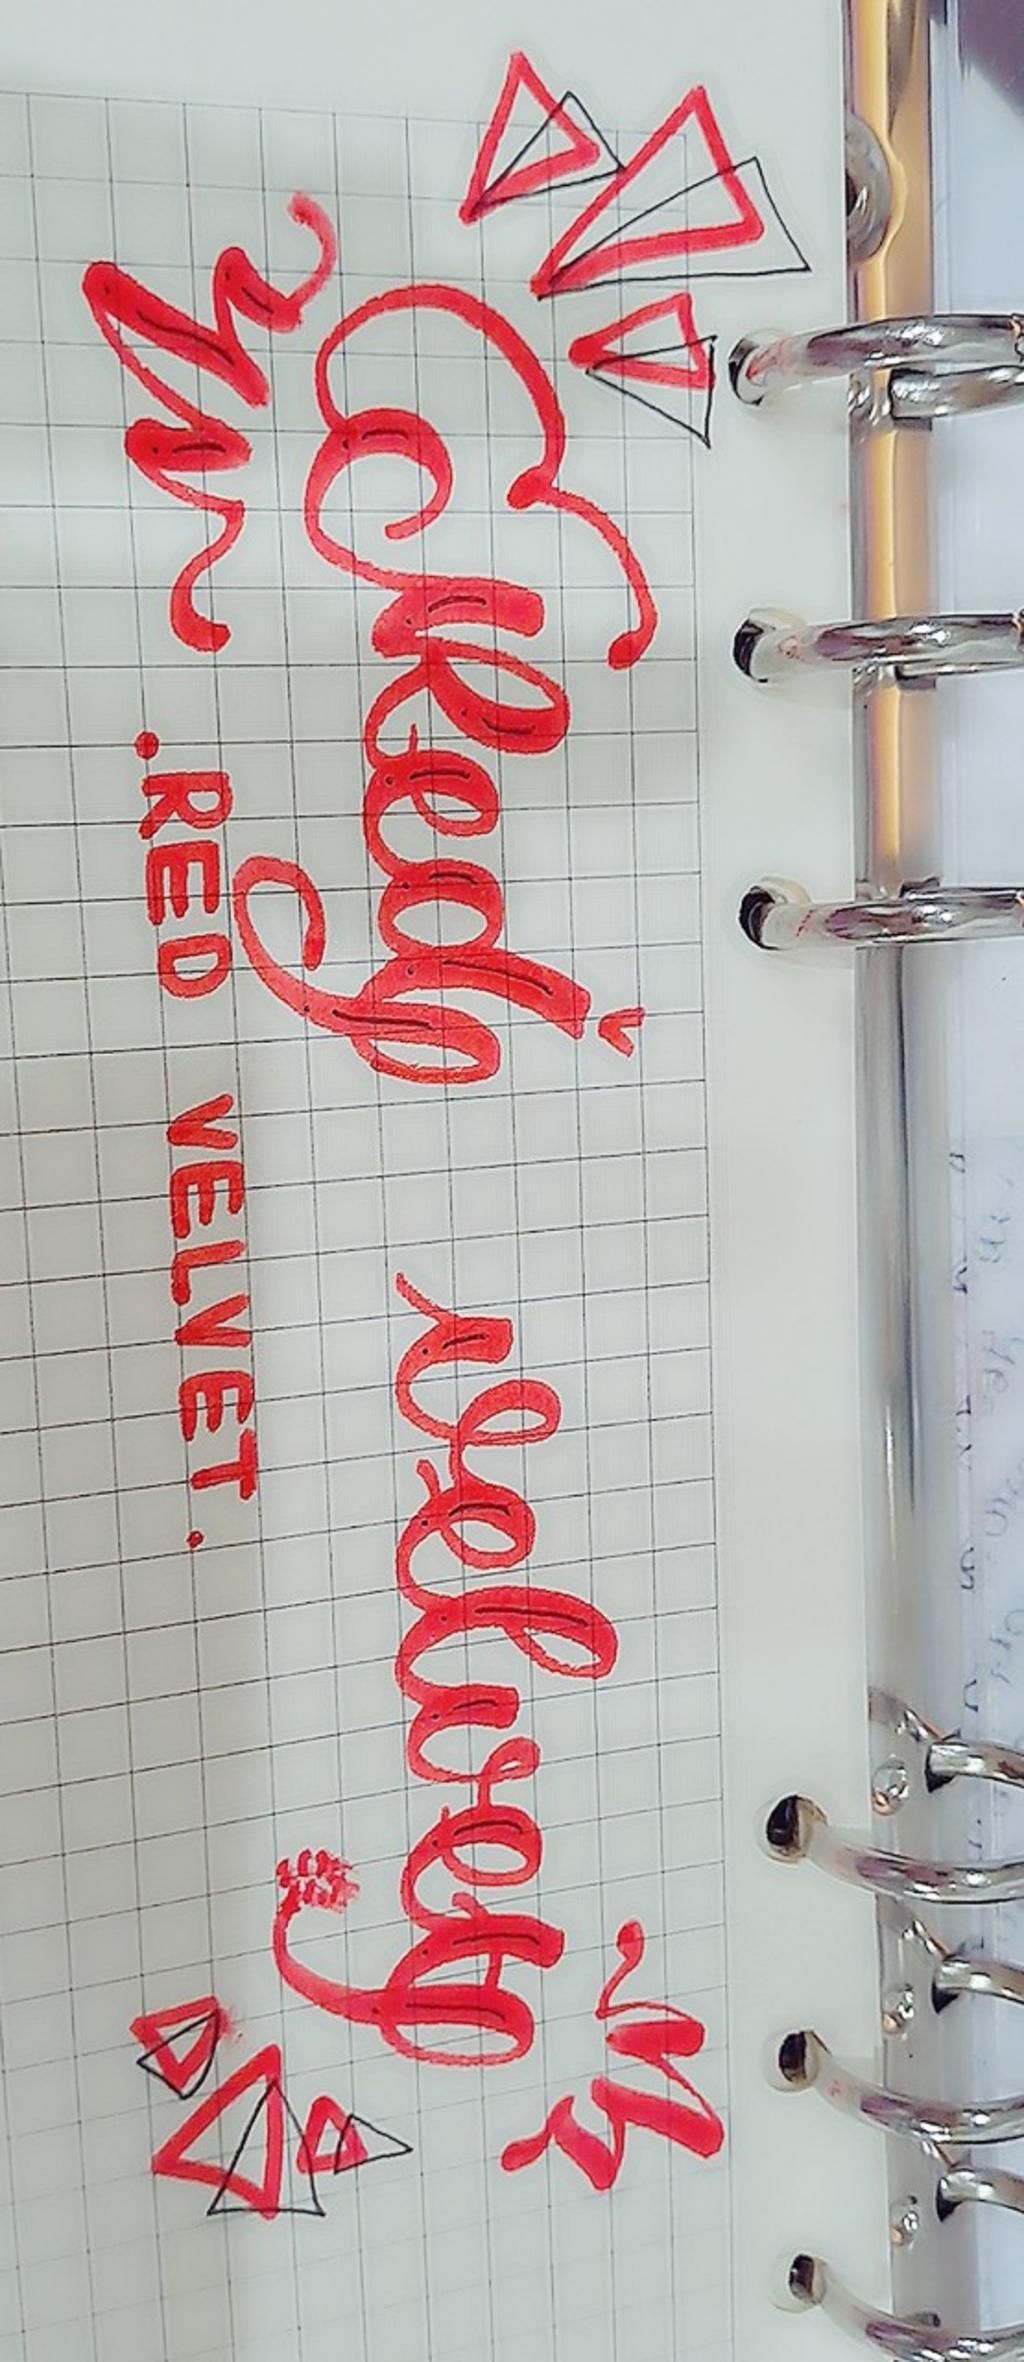 Red velvet
.RED VELVET.